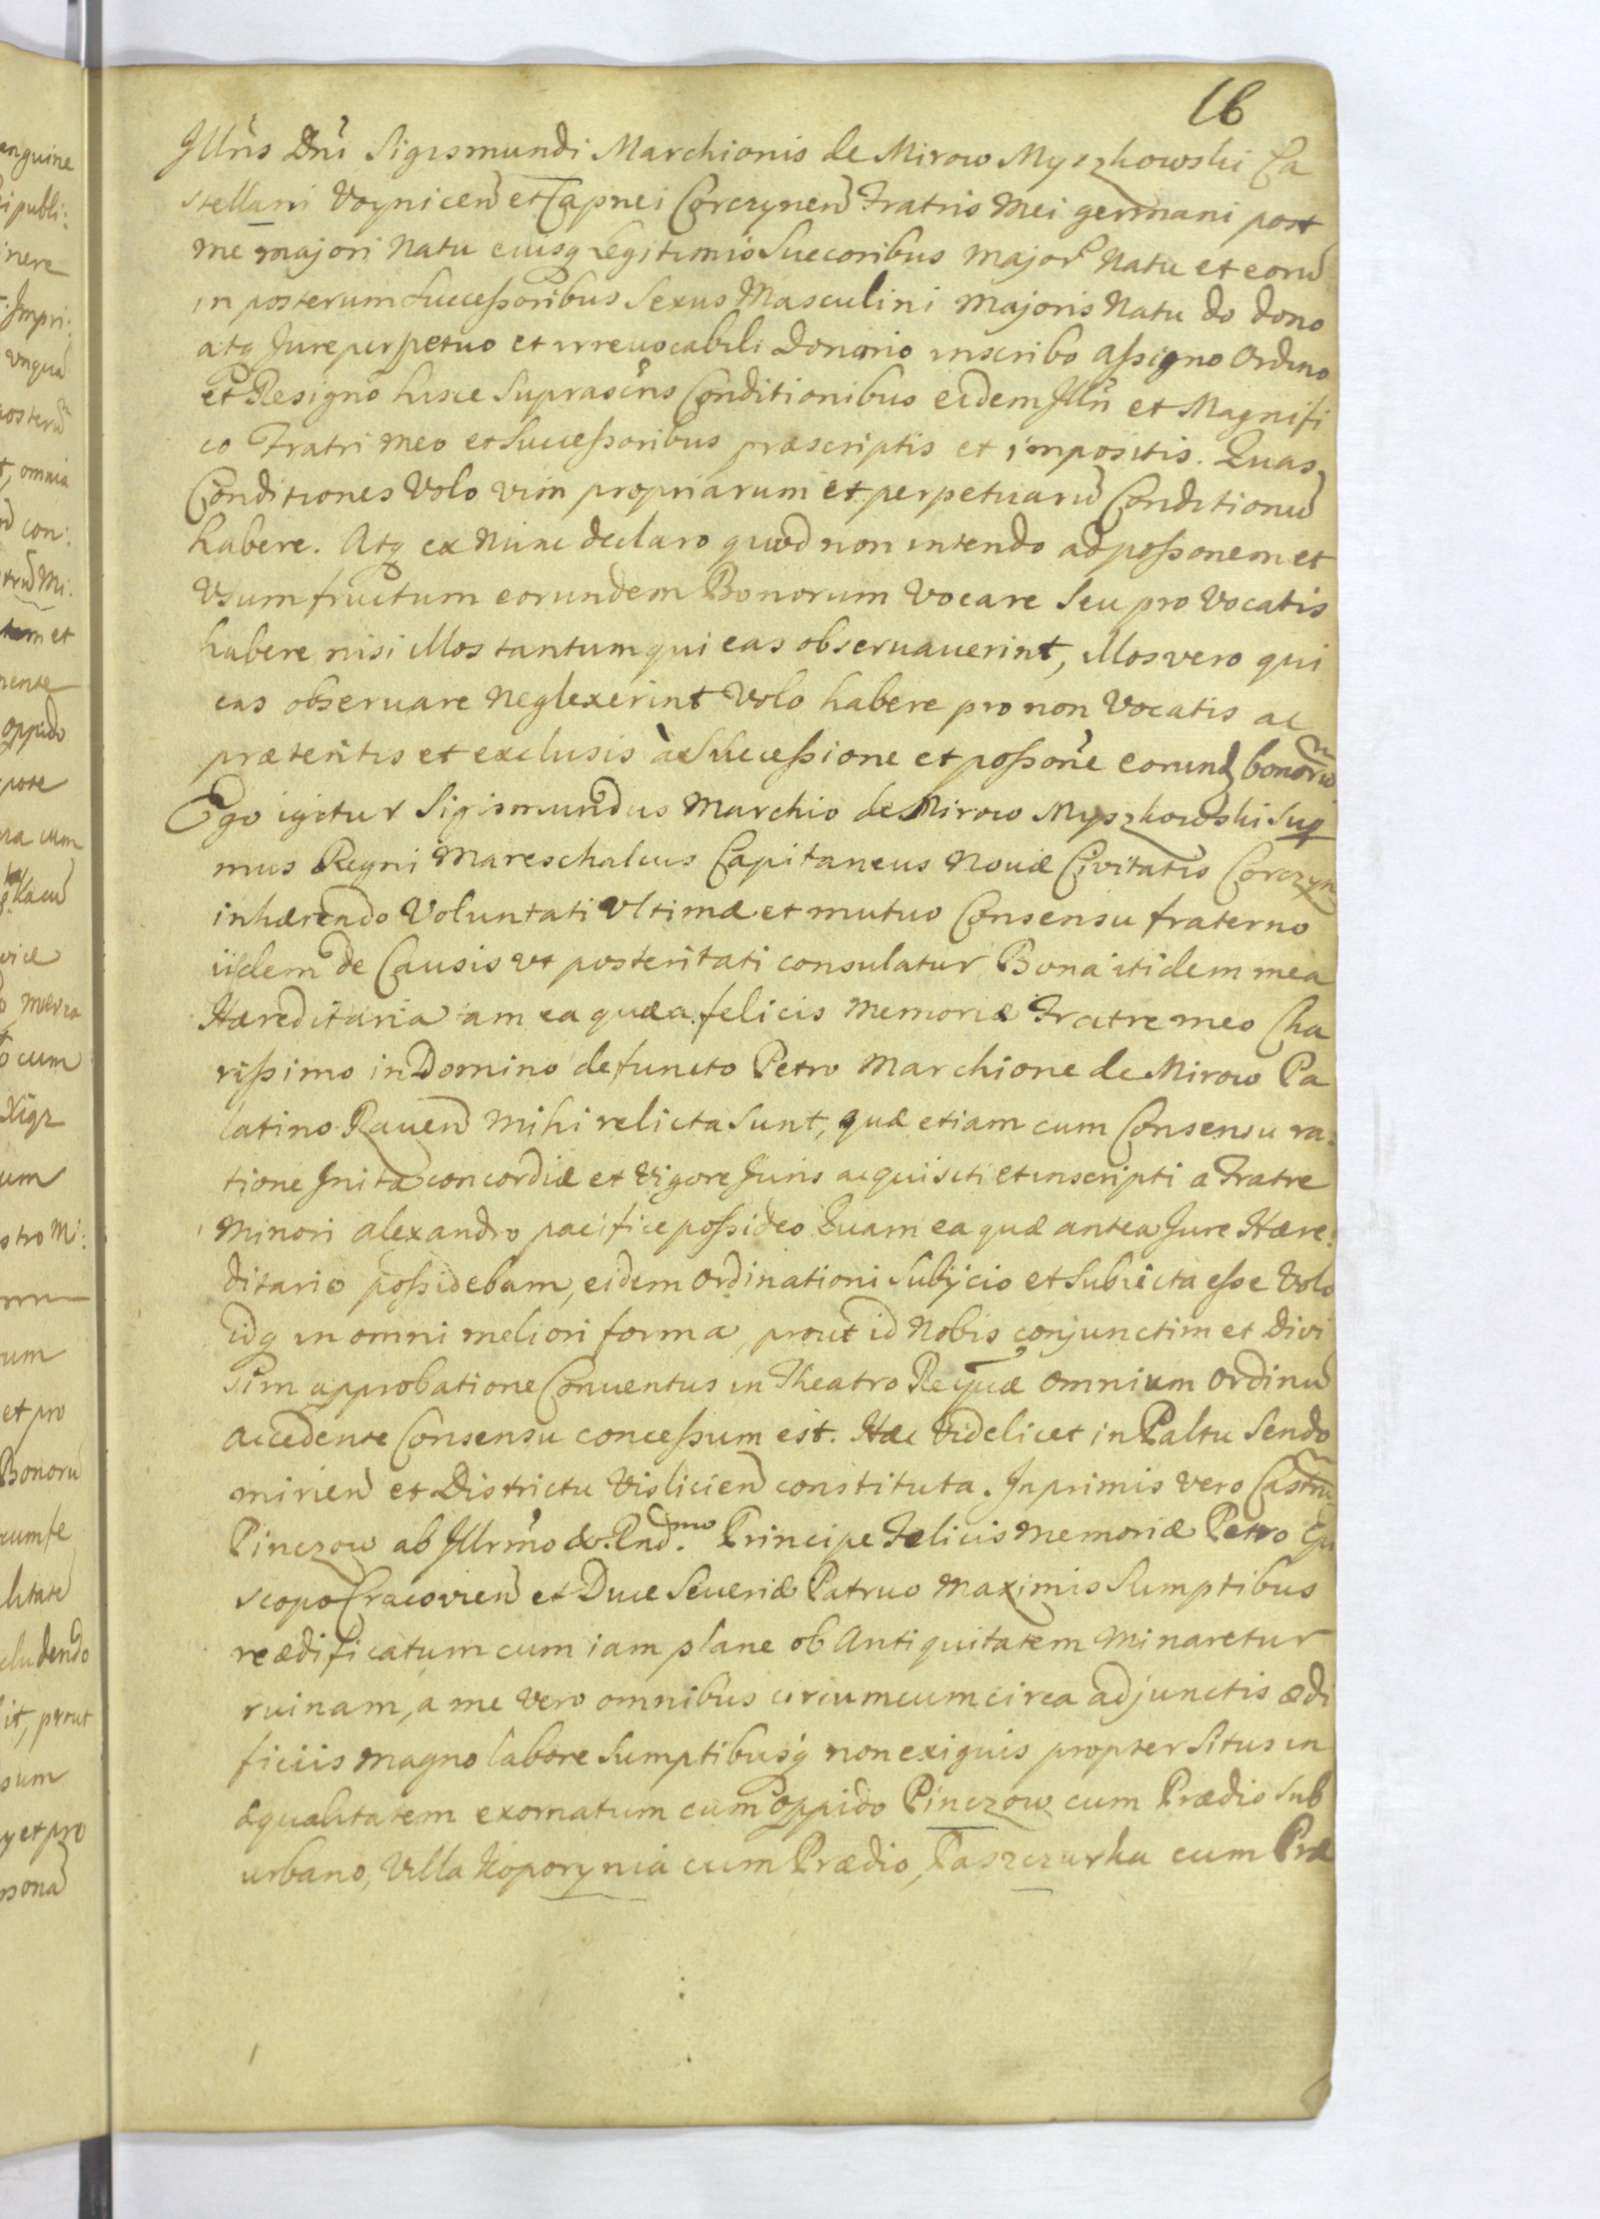 16
Jllris Dni Sigismundi Marchionis de Mirow Myszkowski Ca
stellani Voynicen et Capnei Corczynen Fratris mei germani post
me majori natu eiusq Legitimis Succoribus major natu et eoru
in posterum Successoribus Sexus Masculini Majoris Natu do dono
atq Jure perpetuo et irreuocabili Donorio inscribo assigno Ordino
et Resigno hisce Suprascris Conditionibus eidem Jllri et Magnifi
co Fratri meo et Successoribus præscriptis et impositis. Quas
Conditiones Volo vim propriarum et perpetuaru Conditionu
habere. Atq ex Nunc declaro quod non intendo ad possonem et
Vsumfructum eorundem Bonorum Vocare Seu pro Vocatis
habere nisi illos tantum qui eas obseruauerint, illos vero qui
eas obseruare Neglexerint Volo habere pro non Vocatis ac
præteritis et exclusis a Successione et possone eorund bonoru
Ego igitur Sigismundus Marchio de Mirow Myszkowski Sup
mus Regni Mareschalcus Capitaneus Novæ Civitatis Corczyn
inhærendo Voluntati Vltimæ et mutuo Consensu fraterno
iisdem de Causis vt posteritati consulatur Bona itidem mea
Hæreditaria tam ea quæ a felicis memoriæ Fratre meo Cha
rissimo in Domino defuncto Petro Marchione de Mirow Pa
latino Rauen mihi relicta Sunt, quæ etiam cum Consensu ra:
tione Jnitæ concordiæ et Vigore Juris acquisiti et inscripti a Fratre
Minori alexandro pacifice possideo Quam ea quæ antea Jure Hære:
ditario possidebam, eidem Ordinationi Subijcio et Subiecta esse Volo
idq in omni meliori forma, prout id Nobis conjunctim et divi
sim approbatione Conuentus in Theatro Reipcæ omnium Ordinu
accedente Consensu concessum est. Hæc Videlicet in Paltu Sendo
mirien et Districtu Vislicien constituta. Inprimis vero Castru
Pinczow ab Jllrmo & Rnd.mo Principe Felicis memoriæ Petro Epi
scopo Cracovien et Duce Seueriæ Patruo Maximis Sumptibus
reædificatum cum iam plane ob Antiquitatem Minaretur
ruinam, a me vero omnibus circumcumcirca adjunctis ædi
ficiis magno labore Sumptibusq non exiguis propter Situs in
æqualitatem exornatum cum Oppido Pinczow cum Prædio Sub
urbano, Villa Koporynia cum Prædio, Paszczurka cum Præ